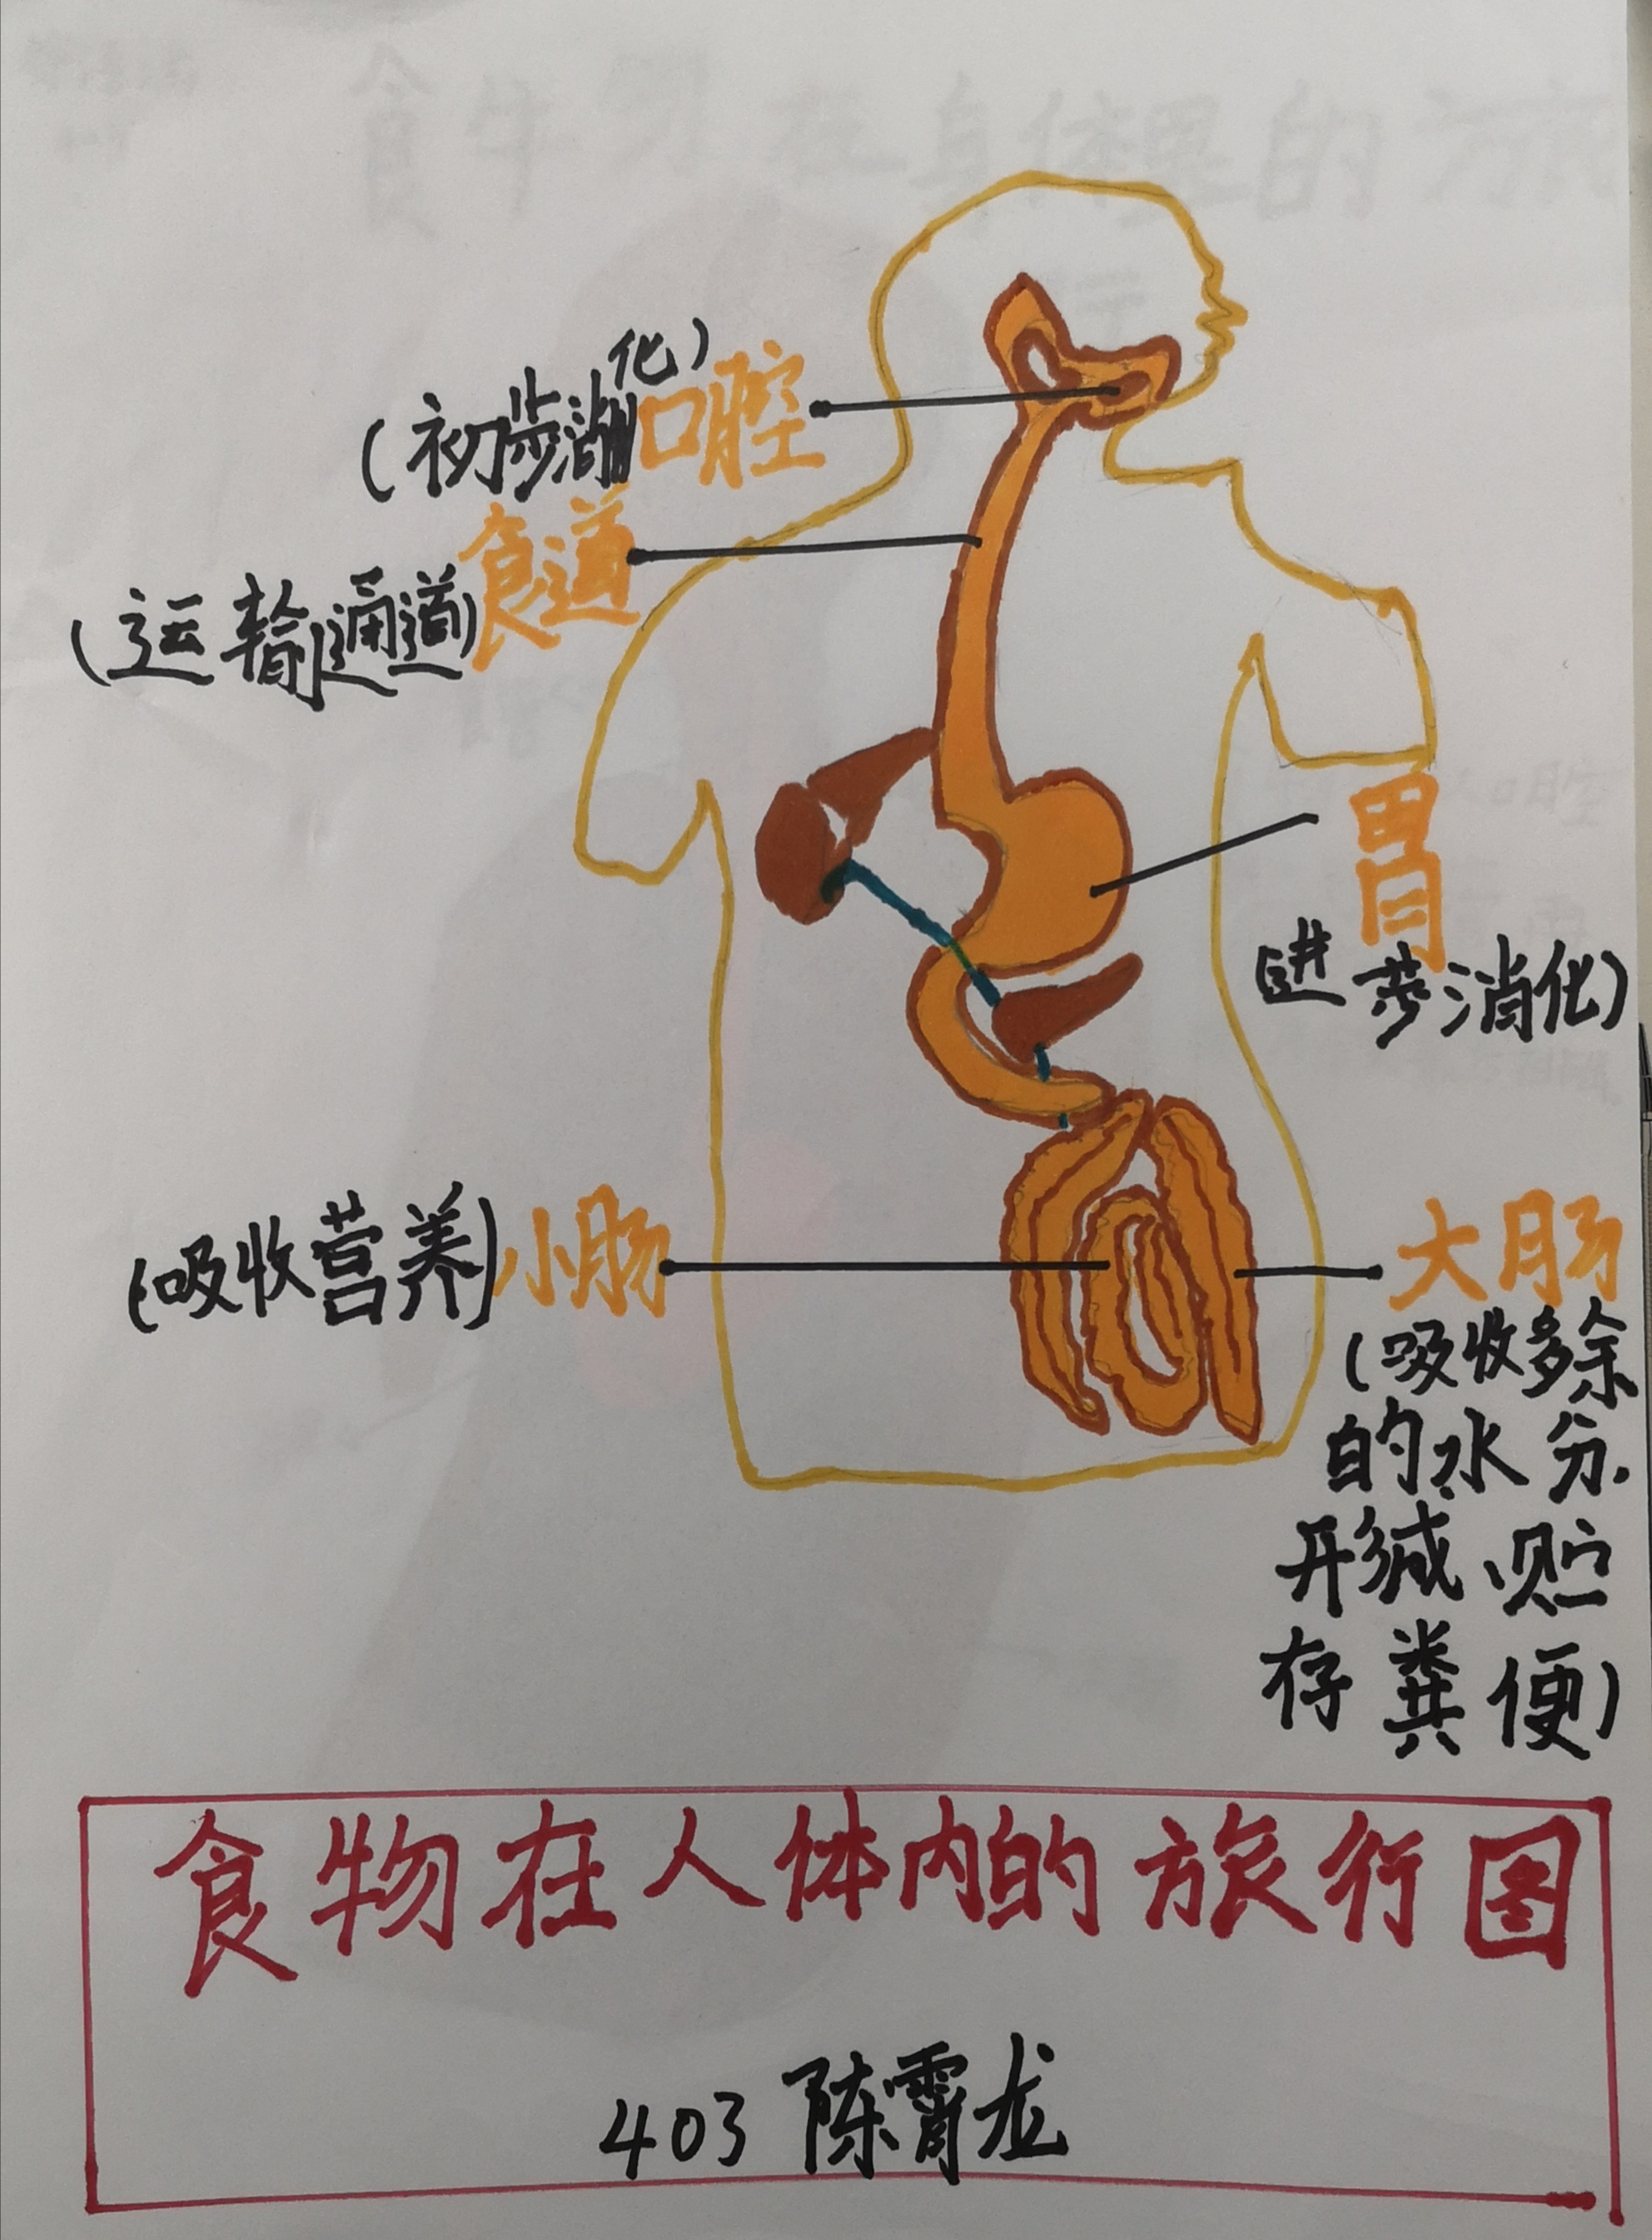 (初步消化)口腔
(运输通道)食道
胃
(进一步消化)
(吸收营养)小肠
大肠
(吸收多余
的水分.
形减、贮
存粪便)
食物在人体内的旅行图
403 陈霄龙